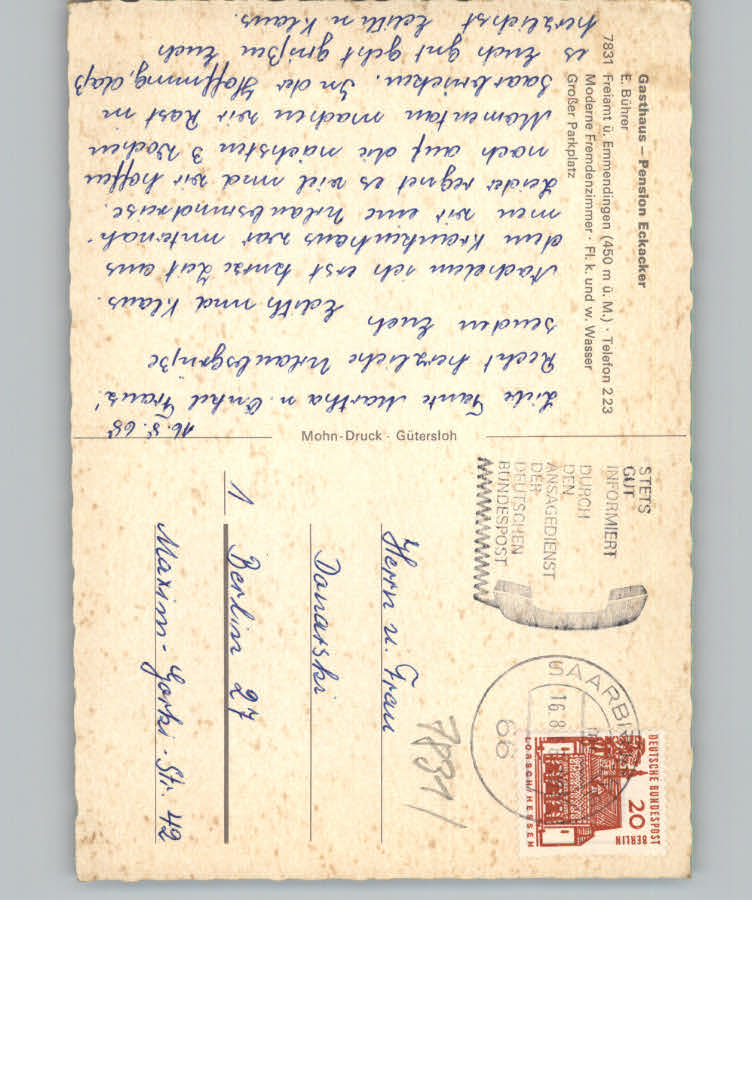 Gasthaus – Pension Eckacker
E. Bührer
7831 Freiamt ü. Emmendingen (450 m ü. M.) · Telefon 2 23
Moderne Fremdenzimmer · Fl. k. und w. Wasser
Großer Parkplatz
16.8.68
Liebe Tante Martha u. Onkel Franz!
Recht herzliche Urlaubsgrüße
senden Euch
Edith und Klaus.
Nachdem ich erst kurze Zeit aus
dem Krankenhaus war unternah-
men wir eine Urlaubsrundreise.
Leider regnet es viel und wir hoffen
noch auf die nächsten 3 Wochen
Momentan machen wir Rast in
Saarbrücken. In der Hoffnung, daß
es Euch gut geht grüßen Euch
herzlichst Edith u. Klaus.
Mohn-Druck · Gütersloh
STETS
GUT
INFORMIERT
DURCH
DEN
ANSAGEDIENST
DER
DEUTSCHEN
BUNDESPOST
66
16.8
DEUTSCHE BUNDESPOST
BERLIN
20
LORSCH/HESSEN
7831
Herrn u. Frau
Donarski
1 Berlin 27
Maxim-Gorki-Str. 42